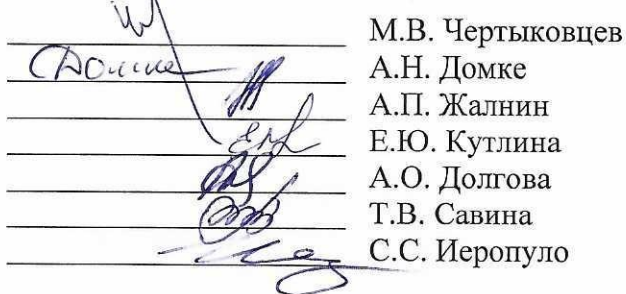 М.В. Чертыковцев
Домке А.Н. Домке
А.П. Жалнин
Е.Ю. Кутлина
А.О. Долгова
Т.В. Савина
С.С. Иеропуло